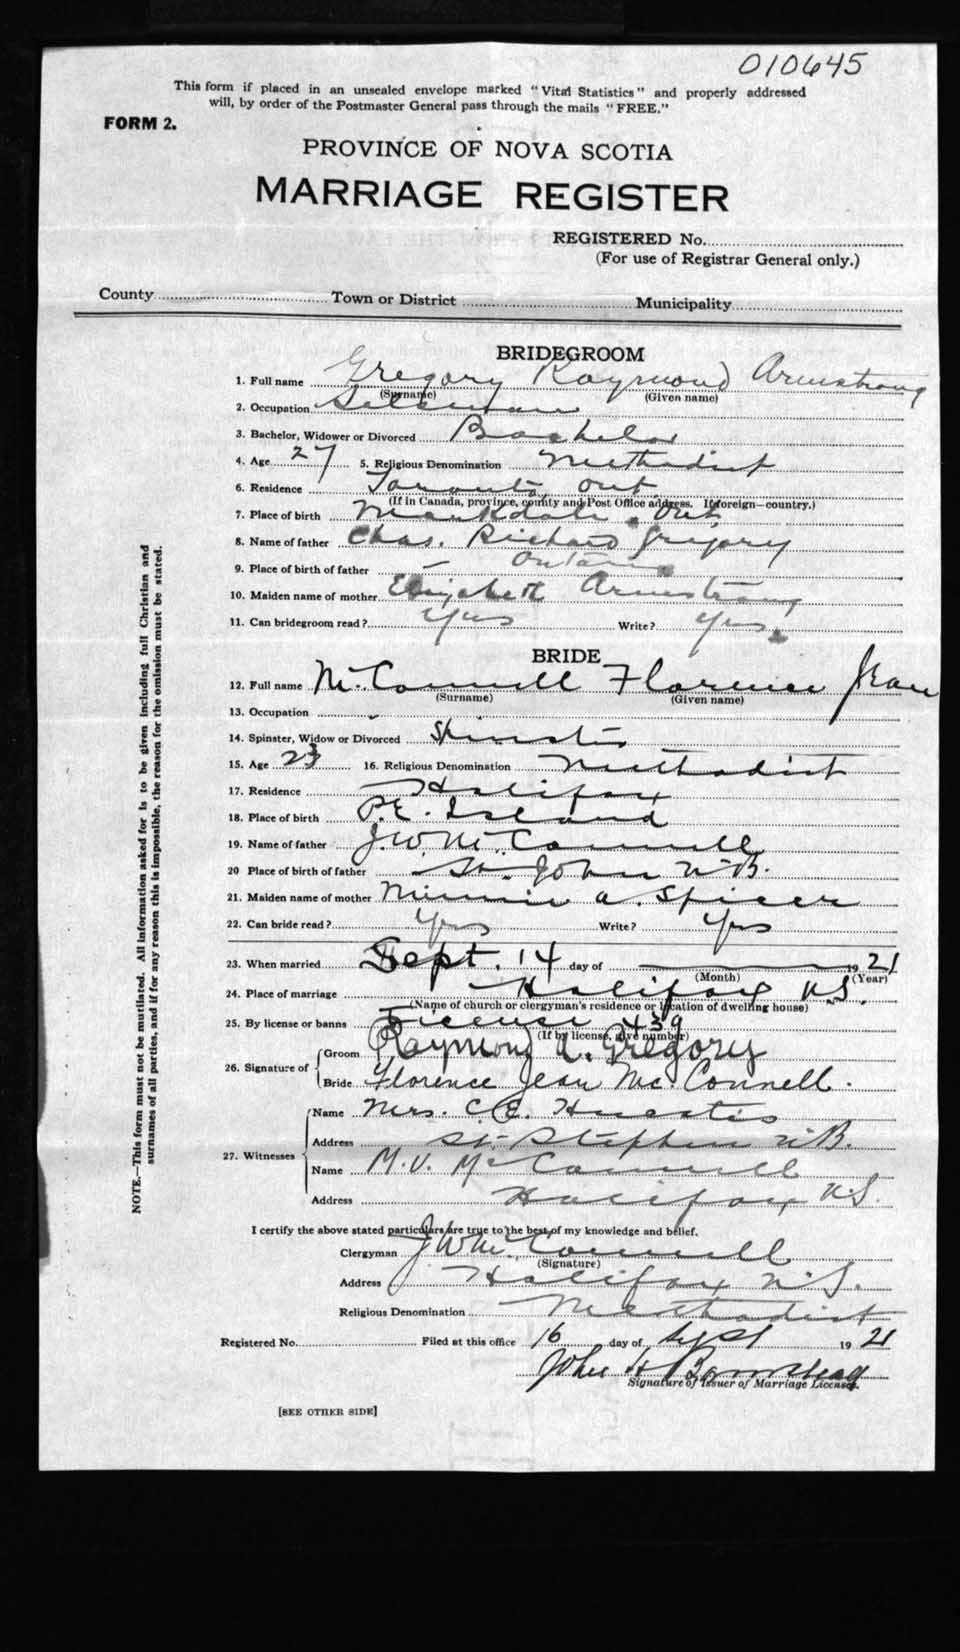 010645
This form if placed in an unsealed envelope marked "Vital Statistics" and properly addressed
will, by order of the Postmaster General pass through the mails "FREE."
FORM 2.
PROVINCE OF NOVA SCOTIA
MARRIAGE REGISTER
REGISTERED No.
(For use of Registrar General only.)
County Town or District Municipality
BRIDEGROOM
1. Full name Gregory Raymond Armstrong
(Surname) (Given name)
2. Occupation Salesman
3. Bachelor, Widower or Divorced Bachelor
4. Age 27 5. Religious Denomination Methodist
6. Residence Toronto, Ont.
(If in Canada, province, county and Post Office address. If foreign—country.)
7. Place of birth Markdale, Ont.
8. Name of father Chas. Richard Gregory
9. Place of birth of father Ontario
10. Maiden name of mother Elizabeth Armstrong
11. Can bridegroom read? Yes Write? Yes.
BRIDE
12. Full name McConnell Florence Jean
(Surname) (Given name)
13. Occupation
14. Spinster, Widow or Divorced Spinster
15. Age 23 16. Religious Denomination Methodist
17. Residence Halifax
18. Place of birth P.E. Island
19. Name of father J.W. McConnell
20 Place of birth of father St. John N.B.
21. Maiden name of mother Minnie A. Spicer
22. Can bride read? Yes Write? Yes
23. When married Sept. 14 day of 1921
(Month) (Year)
24. Place of marriage Halifax N.S.
(Name of church or clergyman's residence or location of dwelling house)
25. By license or banns License 439
(If by license, give number)
26. Signature of Groom Raymond A. Gregory
Bride Florence Jean McConnell.
27. Witnesses Name Mrs. C.E. Huestis
Address St. Stephen N.B.
Name M.V. McConnell
Address Halifax N.S.
I certify the above stated particulars are true to the best of my knowledge and belief.
Clergyman J W McConnell
(Signature)
Address Halifax N.S.
Religious Denomination Methodist
Registered No. Filed at this office 16 day of Sept 1921
John H Barnstead
Signature of Issuer of Marriage Licenses.
[SEE OTHER SIDE]
NOTE.—This form must not be mutilated. All information asked for is to be given including full Christian and
surnames of all parties, and if for any reason this is impossible, the reason for the omission must be stated.